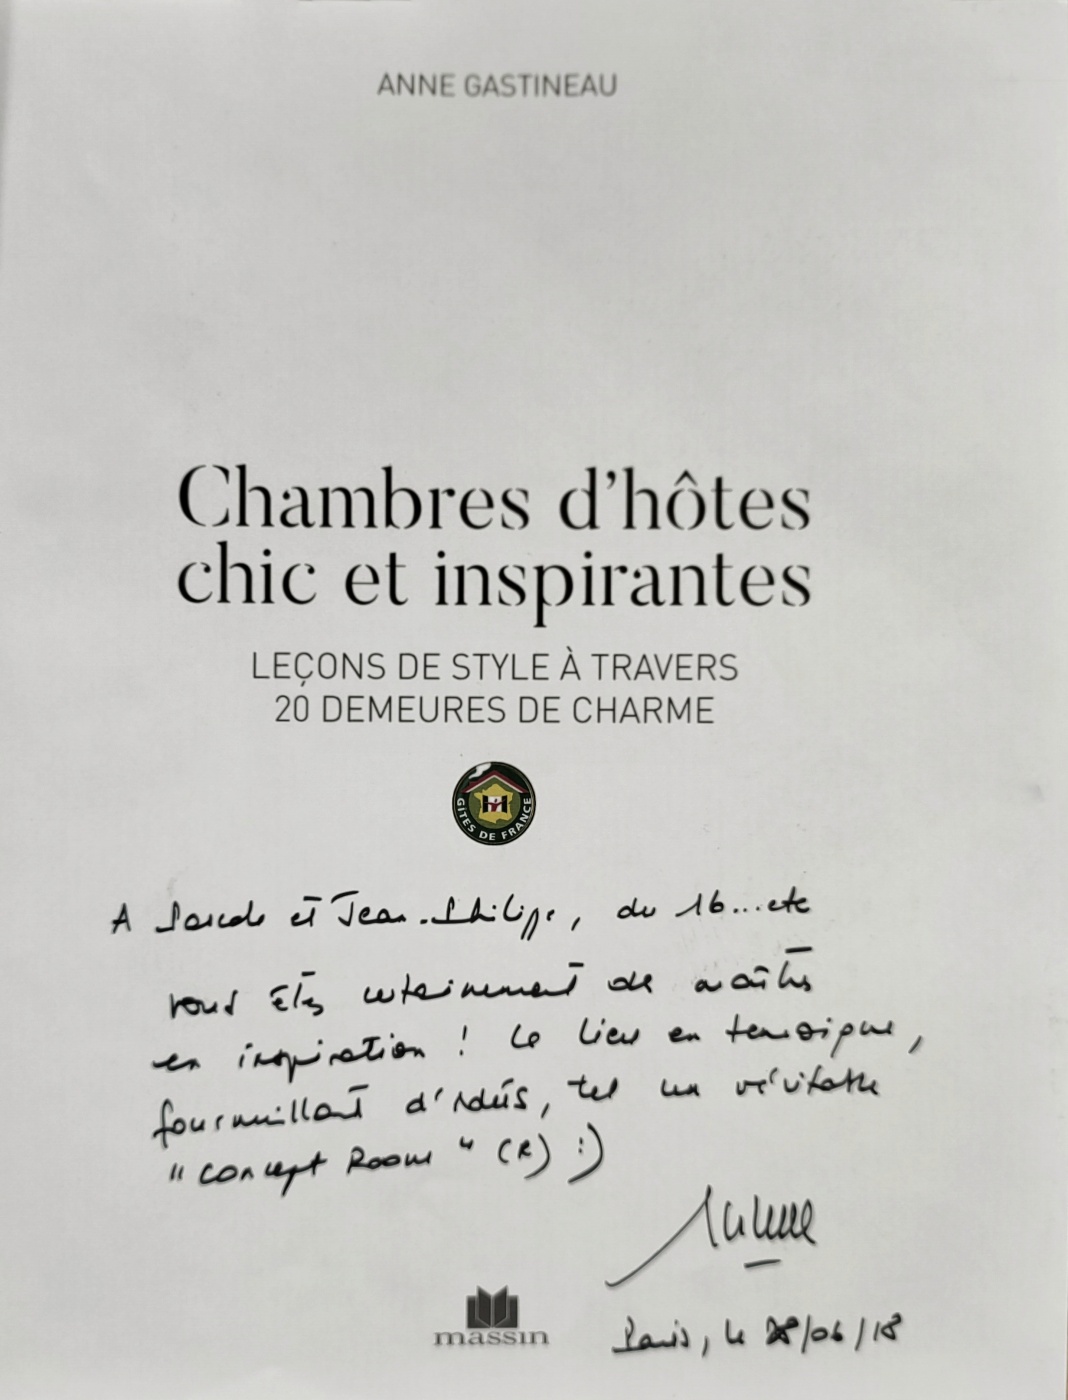 ANNE GASTINEAU
Chambres d'hôtes
chic et inspirantes
LEÇONS DE STYLE À TRAVERS
20 DEMEURES DE CHARME
GÎTES DE FRANCE
A Pascale et Jean-Philippe, du 16...etc
vous êtes certainement de maîtres
en inspiration ! Le lieu en temoigne,
fourmillant d'idées, tel un véritable
"Concept Room" (R) :)
massin
Paris, le /06/18